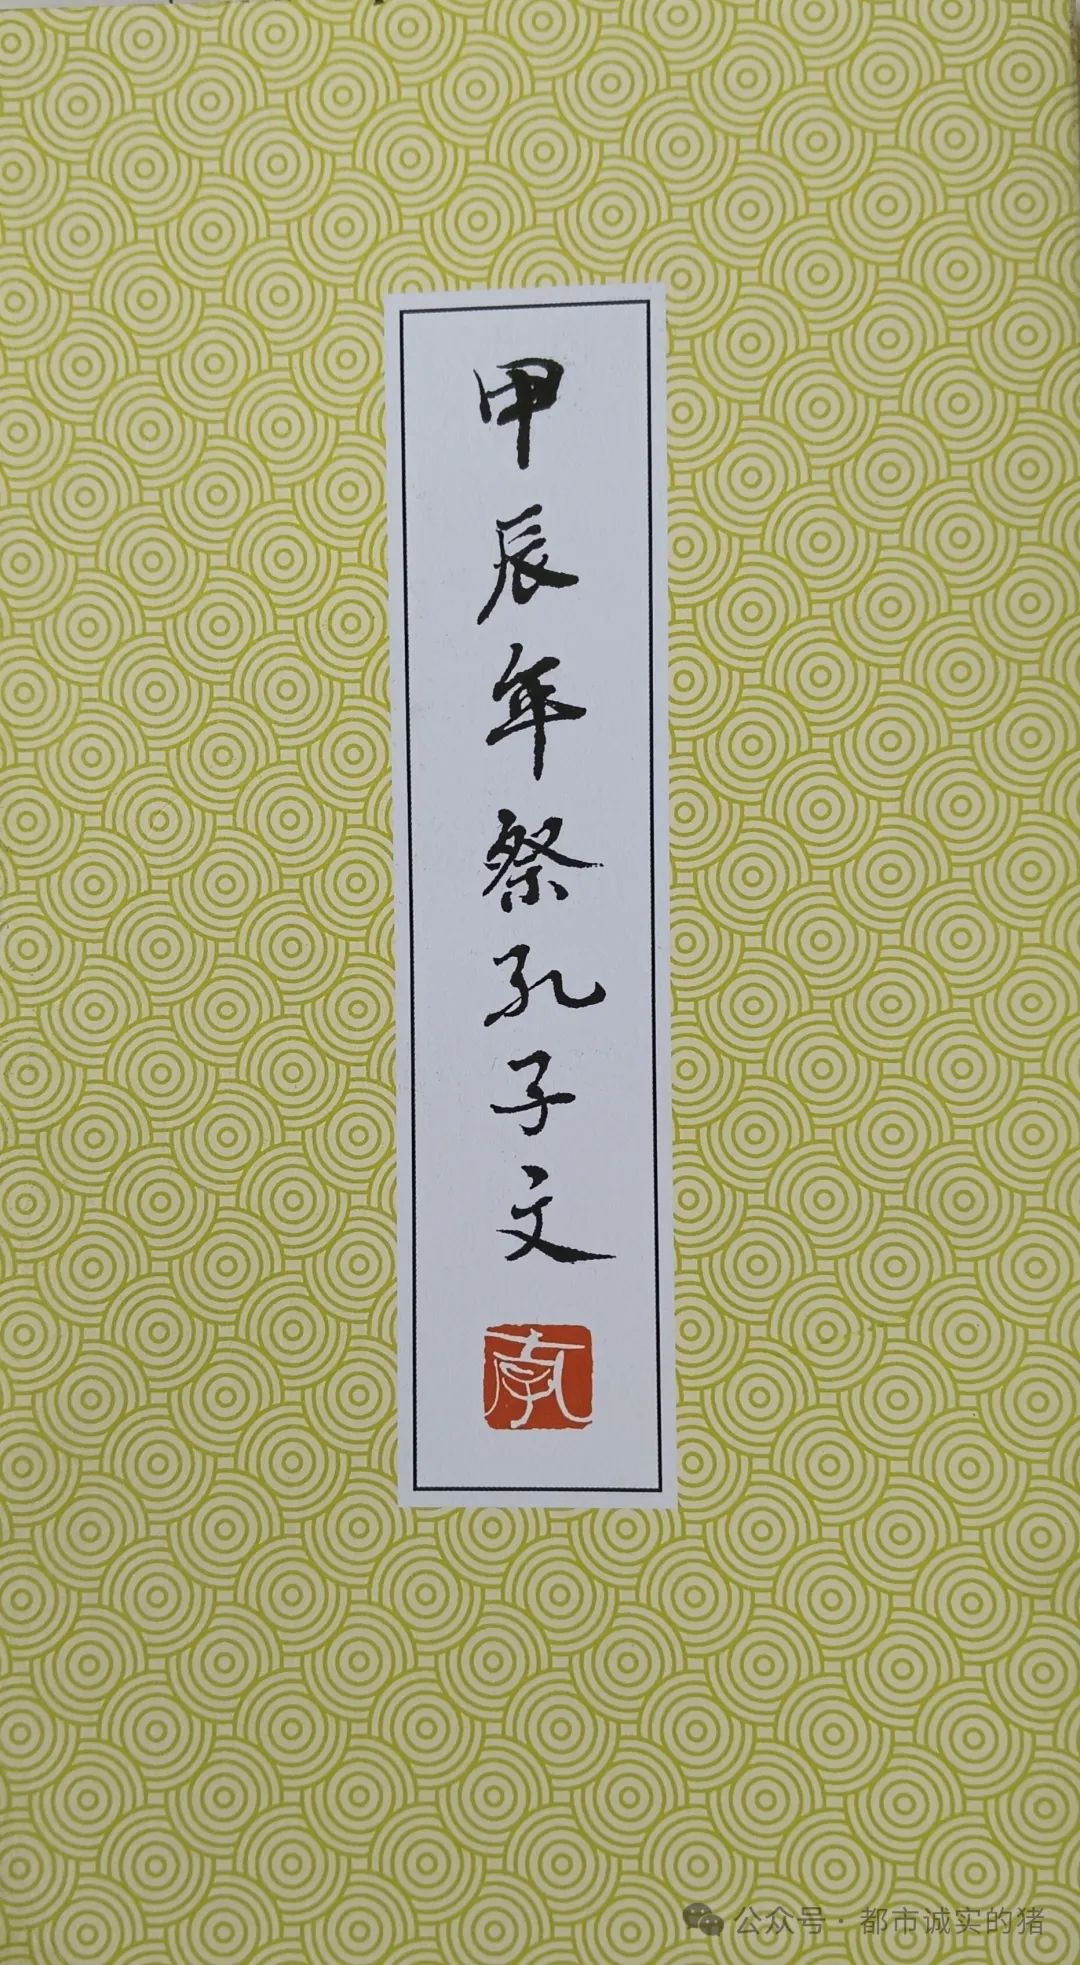 甲辰年祭孔子文
公众号 · 都市诚实的猪